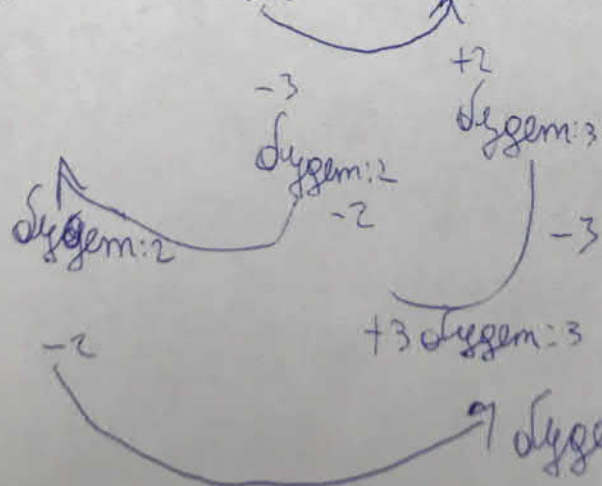 +2
-3
будет:3
будет:2
-2
будет:2
-3
+3 будет:3
-2